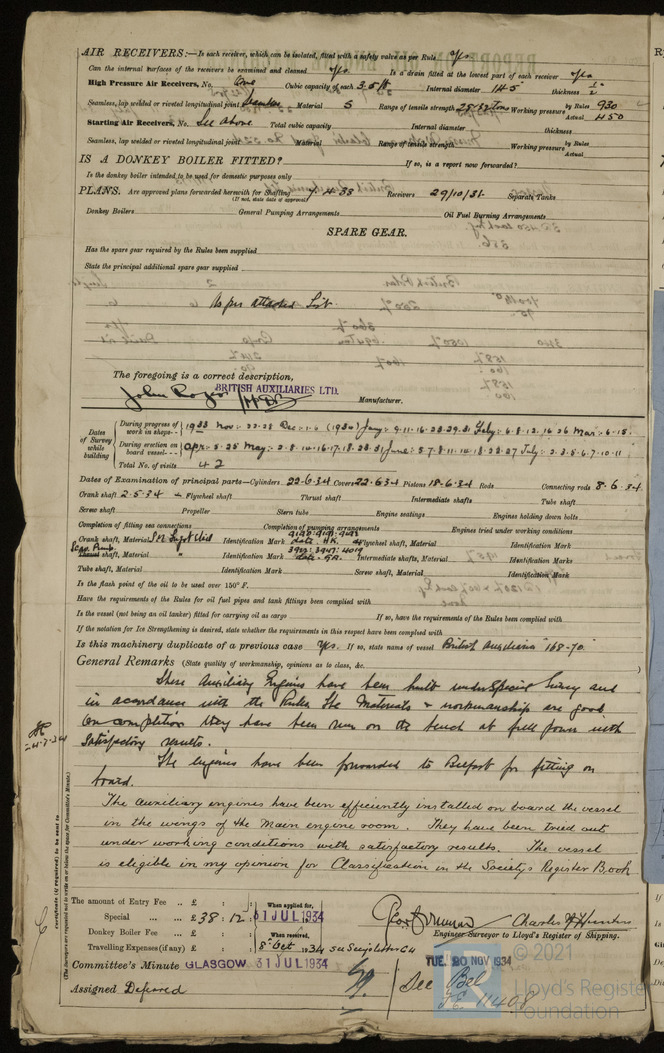 AIR RECEIVERS:—Is each receiver, which can be isolated, fitted with a safety valve as per Rule Yes
Can the internal surfaces of the receivers be examined and cleaned Yes Is a drain fitted at the lowest part of each receiver Yes
High Pressure Air Receivers, No. One Cubic capacity of each 3.5 ft Internal diameter 14.5 thickness 1/2"
Seamless, lap welded or riveted longitudinal joint Seamless Material S Range of tensile strength 28-32 tons Working pressure by Rules 930 Actual 450
Starting Air Receivers, No. See above Total cubic capacity Internal diameter thickness
Seamless, lap welded or riveted longitudinal joint Material Range of tensile strength Working pressure by Rules Actual
IS A DONKEY BOILER FITTED? If so, is a report now forwarded?
Is the donkey boiler intended to be used for domestic purposes only
PLANS. Are approved plans forwarded herewith for Shafting 7.4.33 Receivers 29/10/31 Separate Tanks
(If not, state date of approval)
Donkey Boilers General Pumping Arrangements Oil Fuel Burning Arrangements
SPARE GEAR.
Has the spare gear required by the Rules been supplied
State the principal additional spare gear supplied
As per attached List
The foregoing is a correct description,
BRITISH AUXILIARIES LTD.
Manufacturer.
Dates of Survey while building
During progress of work in shops-- 1933 Nov: 22-28 Dec: 1-6 (1934) Jany: 9-11-16-23-29-31 Feby: 6-8-12-16-26 Mar: 6-15.
During erection on board vessel--- Apr: 5-25 May: 2-8-14-16-17-18-28-31 June: 5-7-8-11-14-18-22-27 July: 2-3-5-6-7-10-11
Total No. of visits 42
Dates of Examination of principal parts—Cylinders 22-6-34 Covers 22-6-34 Pistons 18-6-34 Rods Connecting rods 8-6-34
Crank shaft 2-5-34 Flywheel shaft Thrust shaft Intermediate shafts Tube shaft
Screw shaft Propeller Stern tube Engine seatings Engines holding down bolts
Completion of fitting sea connections Completion of pumping arrangements Engines tried under working conditions
Crank shaft, Material S.M. Ingot Steel Identification Mark Flywheel shaft, Material Identification Mark
shaft, Material " Identification Mark Intermediate shafts, Material Identification Marks
Tube shaft, Material Identification Mark Screw shaft, Material Identification Mark
Is the flash point of the oil to be used over 150° F.
Have the requirements of the Rules for oil fuel pipes and tank fittings been complied with
Is the vessel (not being an oil tanker) fitted for carrying oil as cargo If so, have the requirements of the Rules been complied with
If the notation for Ice Strengthening is desired, state whether the requirements in this respect have been complied with
Is this machinery duplicate of a previous case Yes. If so, state name of vessel British Auxiliaries 168-70
General Remarks (State quality of workmanship, opinions as to class, &c.
These Auxiliary Engines have been built under Special Survey and
in accordance with the Rules. The Materials & workmanship are good
On completion they have been run on the bench at full power with
satisfactory results.
The Engines have been forwarded to Belfast for fitting on
board.
The auxiliary engines have been efficiently installed on board the vessel
in the wings of the main engine room. They have been tried out
under working conditions with satisfactory results. The vessel
is eligible in my opinion for Classification in the Society's Register Book
(The Surveyors are requested not to write on or below the space for Committee's Minute.)
The amount of Entry Fee .. £ : : When applied for,
Special ... ... £ 38 : 12 : 31 JUL 1934
Donkey Boiler Fee ... £ : : When received,
Travelling Expenses (if any) £ : : 8 Oct 1934
Engineer Surveyor to Lloyd's Register of Shipping.
Committee's Minute GLASGOW 31 JUL 1934
TUE. 20 NOV 1934
Assigned Deferred
See Bel
J.E. 11408
© 2021
Lloyd's Register
Foundation